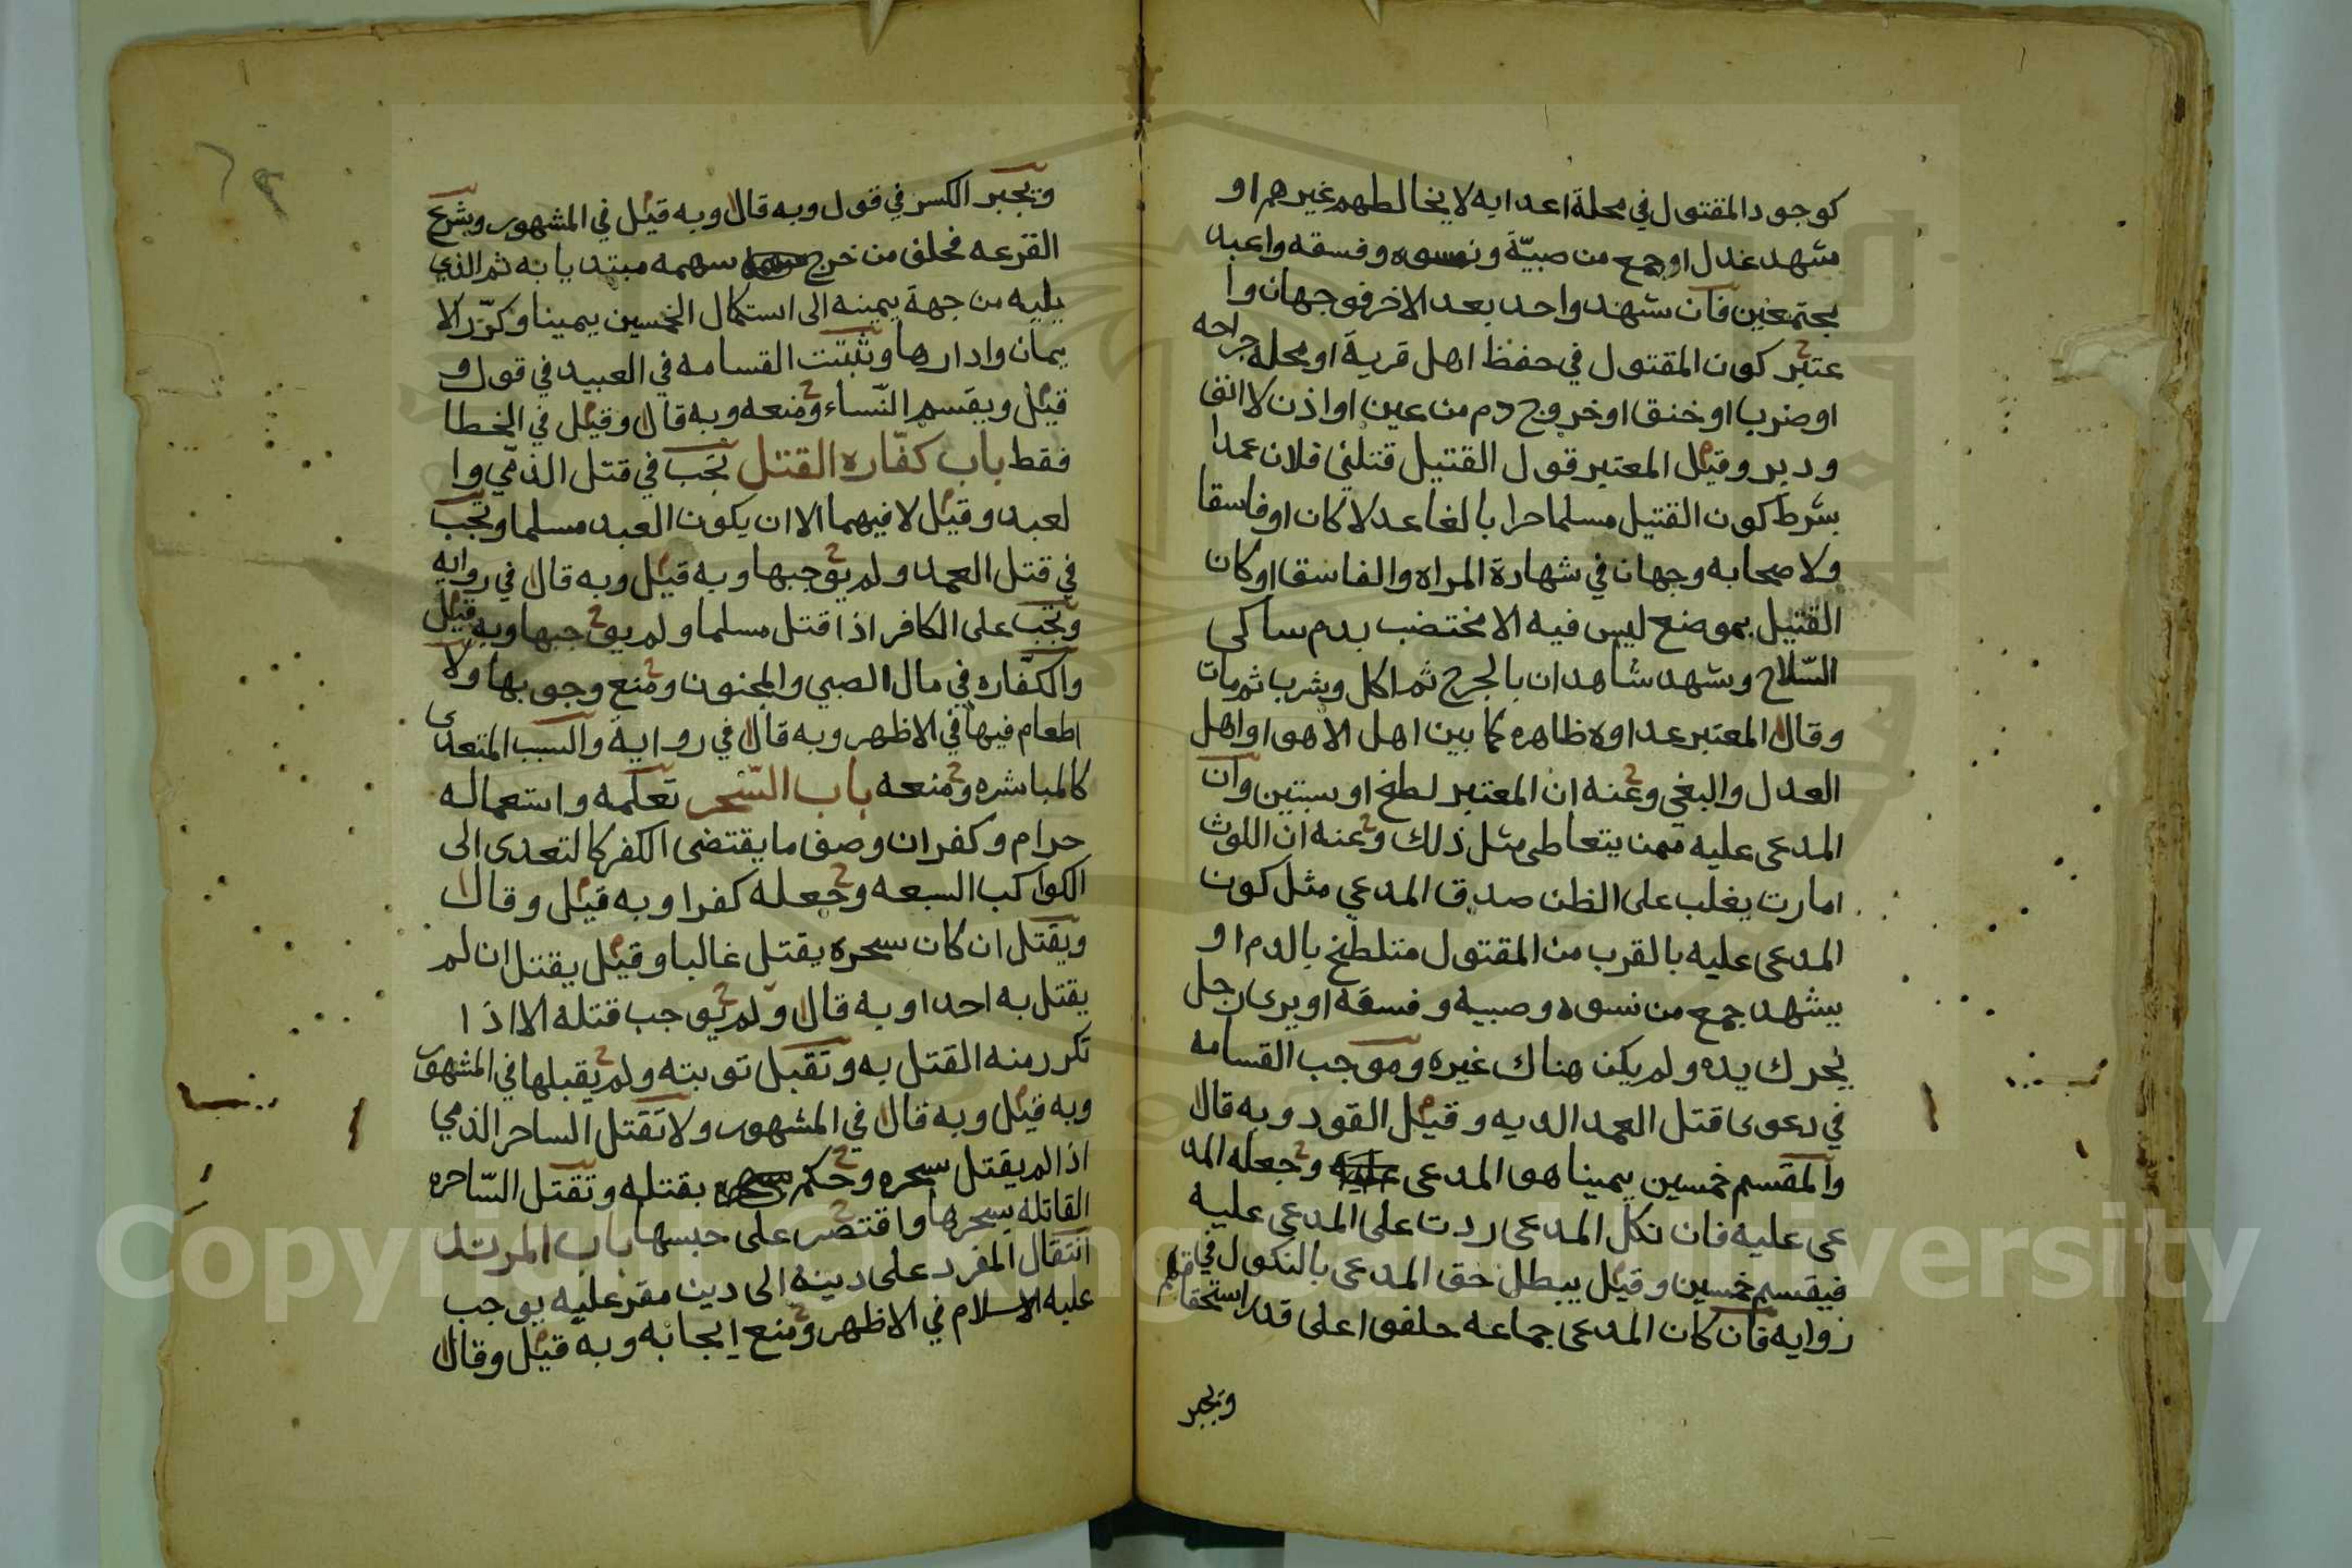 كوجود المقتول في محلة اعدايه لا يخالطهم غيرهم او
شهد عدل او جمع من صبيّة ونسوه وفسقه واعبد
مجتمعين فان شهد واحد بعد الاخر فوجهان وا
عتبر كون المقتول في حفظ اهل قرية او محلة جراحه
او ضرب او خنق او خروج دم من عين او اذن لا انف
ودبر وقيل المعتبر قول القتيل قتلني فلان عمدا
بشرط كون القتيل مسلما حرا بالغا عدلا كان او فاسقا
ولاصحابه وجهان في شهادة المراه والفاسق او كان
القتيل بموضع ليس فيه الا مختضب بدم ساكى
السّلاح وشهد شاهدان بالجرح ثم اكل وشرب ثم مات
وقال المعتبر عداوه ظاهره كما بين اهل الاهوا واهل
العدل والبغي وعنه ان المعتبر لطخ او سبتين وان
المدعى عليه ممن يتعاطى مثل ذلك وعنه ان اللوث
امارت يغلب على الظن صدق المدعي مثل كون
المدعى عليه بالقرب من المقتول متلطخ بالدم او
يشهد جمع من نسوه وصبيه وفسقه او يرى رجل
يحرك يده ولم يكن هناك غيره وموجب القسامه
في دعوى قتل العمد الديه وقيل القود وبه قال
والمقسم خمسين يمينا هو المدعى عليه وجعله المد
عى عليه فان نكل المدعى ردت على المدعى عليه
فيقسم خمسين وقيل يبطل حق المدعى بالنكول في
روايه فان كان المدعى جماعه حلفوا على قدر استحقاقهم
وتجبر
وتجبر الكسر في قول وبه قال وبه قيل في المشهور وشرع
القرعه فحلف من خرج سهمه مبتد يا به ثم الذي
يليه من جهة يمينه الى استكمال الخمسين يمينا وكرّر الا
يمان وادارها وتثبت القسامه في العبيد في قول و
قيل ويقسم النّساء ومنعه وبه قال وقيل في الخطا
فقط باب كفّاره القتل تجب في قتل الذمّي وا
لعبد وقيل لا فيهما الا ان يكون العبد مسلما وتجب
في قتل العمد ولم يوجبها وبه قيل وبه قال في روايه
وتجب على الكافر اذا قتل مسلما ولم يوجبها وبه قيل
والكفّاره في مال الصبي والمجنون ومنع وجوبها ولا
اطعام فيها في الاظهر وبه قال في رواية والسبب المتعدى
كالمباشره ومنعه باب السّحر تعلمه واستعماله
حرام وكفر ان وصف ما يقتضى الكفر كالتعدى الى
الكواكب السبعه وجعله كفرا وبه قيل وقال
ويقتل ان كان سحره يقتل غالبا وقيل يقتل ان لم
يقتل به احدا وبه قال ولم يوجب قتله الا اذا
تكرر منه القتل به وتقبل توبته ولم يقبلها في المشهور
وبه قيل وبه قال في المشهور ولا تقتل الساحر الذمي
اذا لم يقتل سحره وحكم سحره بقتله وتقتل السّاحره
القاتله بسحرها واقتصر على حبسها باب المرتد
انتقال المفرد على دينه الى دين مقر عليه يوجب
عليه الاسلام في الاظهر ومنع ايجابه وبه قيل وقال
Copyright © King Saud University